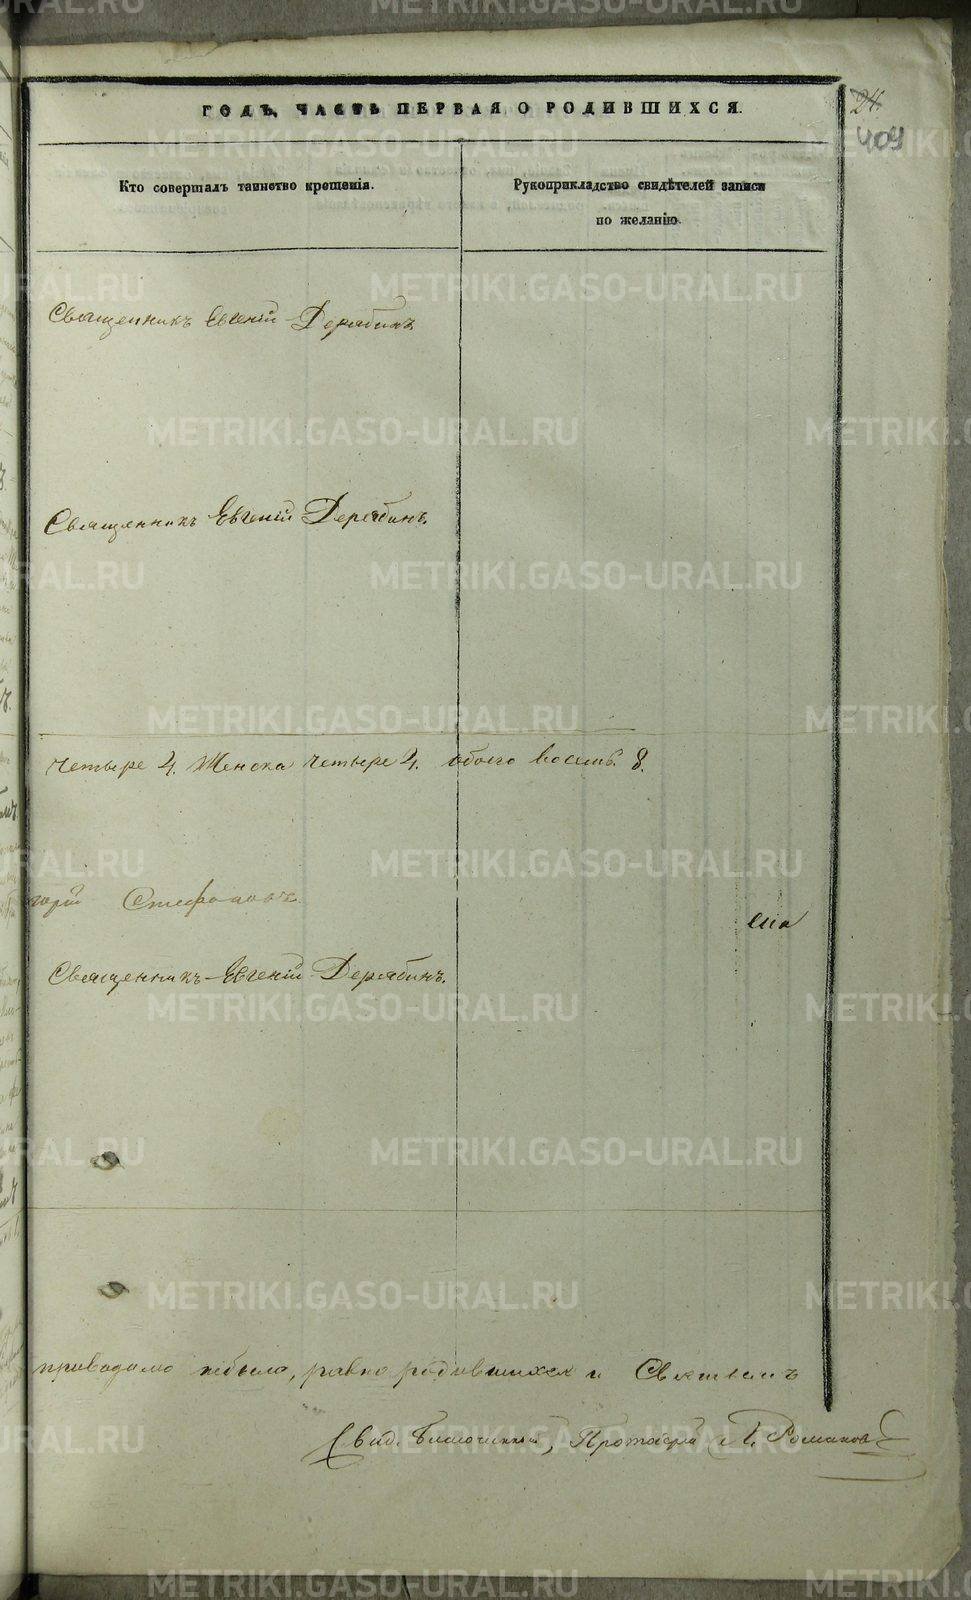 ГОДЪ, ЧАСТЬ ПЕРВАЯ О РОДИВШИХСЯ.
24.
409
Кто совершалъ таинство крещенія.
Рукоприкладство свидѣтелей записи
по желанію.
Священникъ Евгеній Дерябинъ
Священникъ Евгеній Дерябинъ.
четыре 4. Женска четыре 4. обоего восемь 8.
горій Стефановъ
Священникъ Евгеній Дерябинъ.
приводимо небыло, равно родившихся и
Свид. Благочинный, Протоіерей Романовъ
METRIKI.GASO-URAL.RU